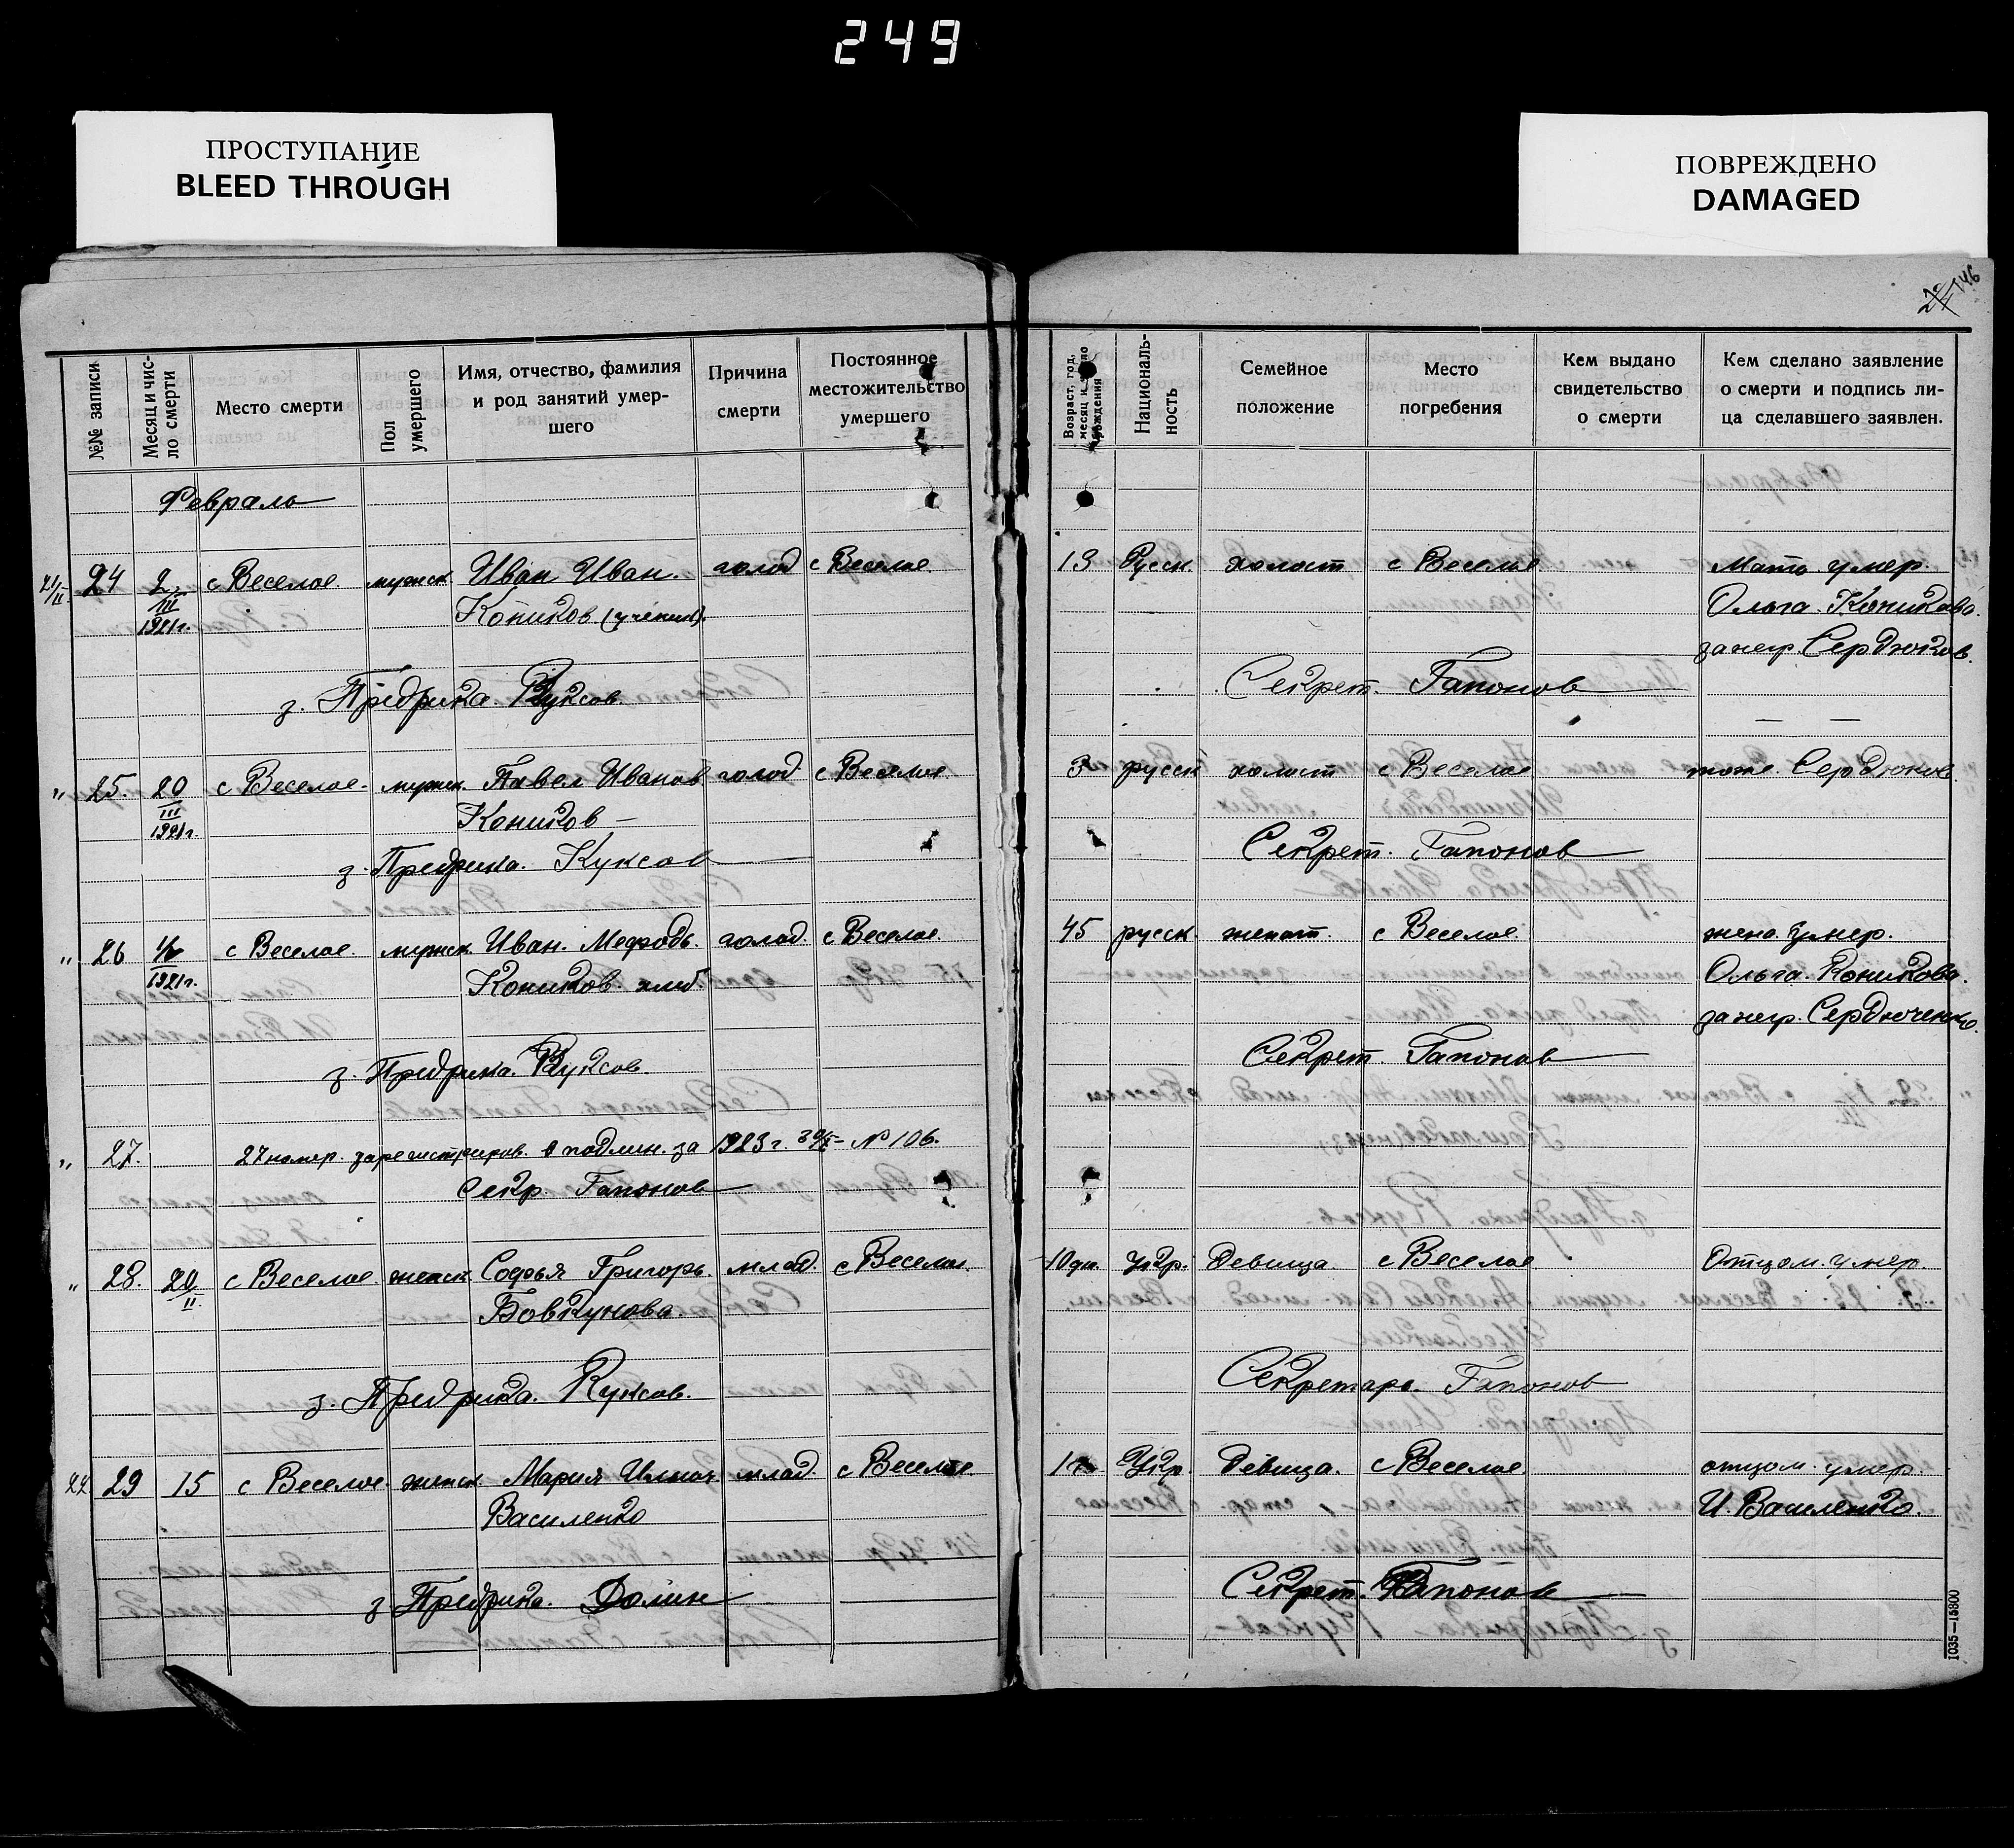 249
ПРОСТУПАНИЕ
BLEED THROUGH
ПОВРЕЖДЕНО
DAMAGED
24 146
№№ записи
Месяц и число смерти
Место смерти
Пол умершего
Имя, отчество, фамилия
и род занятий умер-
шего
Причина
смерти
Постоянное
местожительство
умершего
Возраст, год,
месяц и число
рождения
Националь-
ность
Семейное
положение
Место
погребения
Кем выдано
свидетельство
о смерти
Кем сделано заявление
о смерти и подпись ли-
ца сделавшего заявлен.
Февраль
21/II 24 2 с Веселое мужск. Иван Иван. голод с Веселое. 13 Русск. холост с Веселое Мать умер.
III 1921г. Копиков (ученик). Ольга Копикова.
за негр. Сердюков.
з. Предрика Куксов. Секрет. Гапонов
" 25. 20 с Веселое мужск. Павел Иванов. голод с Веселое 3 русск холост с Веселое тоже. Сердюков.
III 1921г. Копиков
з. Предрика. Куксов Секрет. Гапонов
" 26 с Веселое. мужск. Иван. Мефодь. голод. с Веселое. 45 русск. женат. с Веселое. жена умер.
1921г. Копиков. хлеб. Ольга Копикова.
за негр. Сердюченко.
з. Предрика. Куксов. Секрет. Гапонов
" 27. 27 номер. зарегистриров. в подлин. за 1923г. № 106.
Секр. Гапонов
" 28. 20 с Веселое. женск. Софья Григорь. млад. с Веселое. 10 дн. Укр. Девица. с Веселое Отцом умер.
II. Бовкунова.
з. Предрика. Куксов. Секретарь. Гапонов
22 29 15 с Веселое. женск. Мария Ильин. млад. с Веселое. 1 Укр. Девица. с Веселое отцом умер.
Василенко И. Василенко.
з Предрика. Долин Секрет. Гапонов
1035—15800